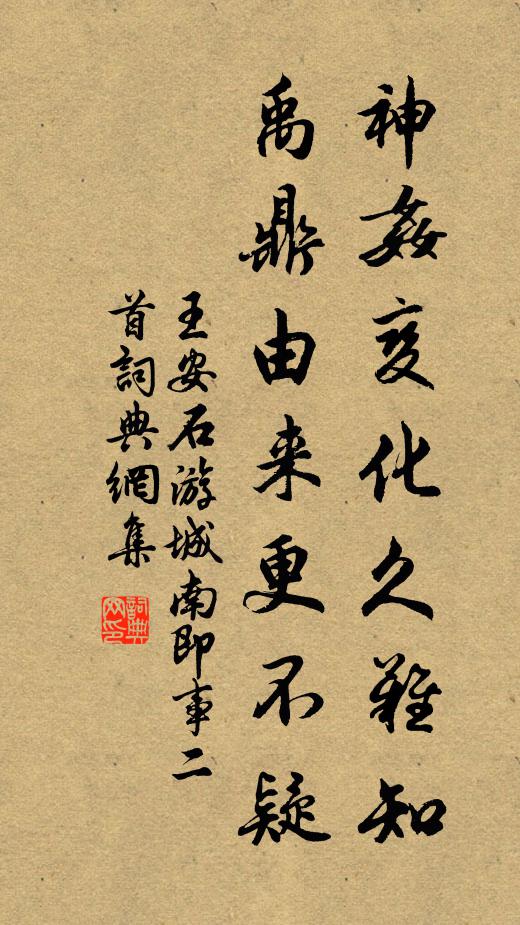 神姦变化久難知
禹鼎由来更不疑
王安石游城南即事二
首詞典網集
詞典
网印